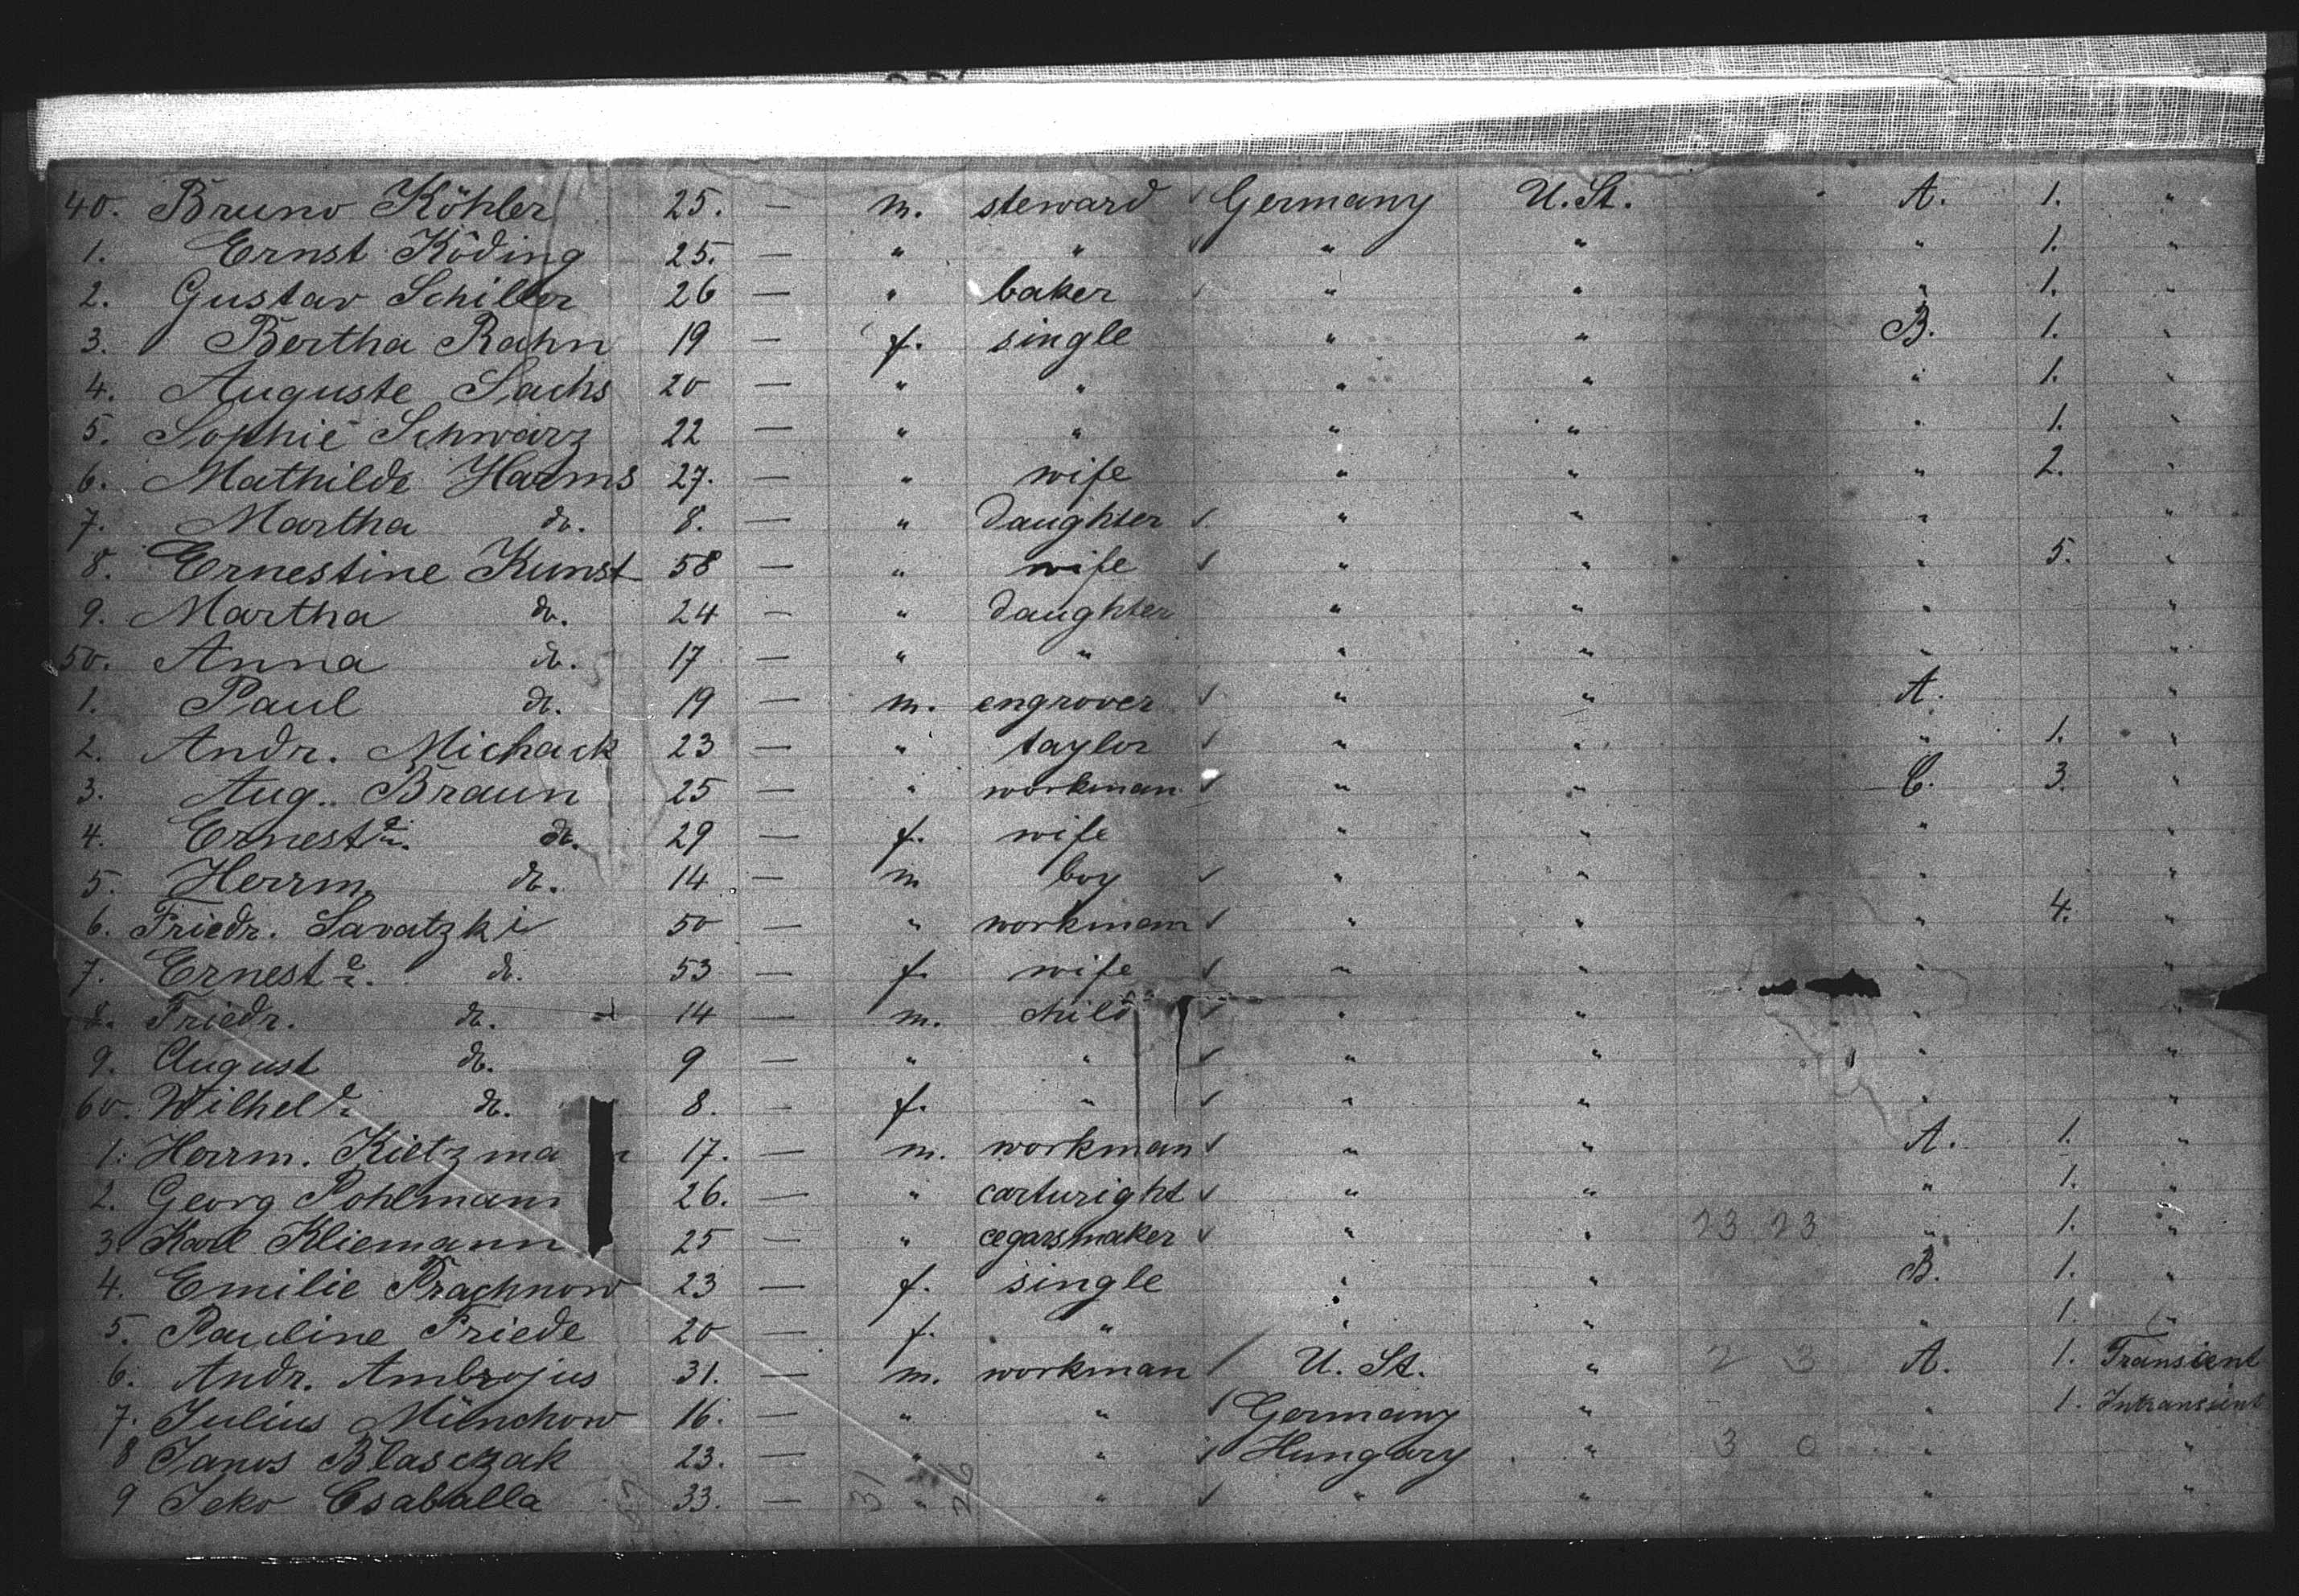 40. Bruno Köhler 25. — m. steward ✓ Germany U. St. A. 1. "
1. Ernst Köding 25. — " " ✓ " " " 1. "
2. Gustav Schiller 26 — " baker ✓ " " " 1. "
3. Bertha Rahn 19 — f. single " " B. 1. "
4. Auguste Sachs 20 — " " " " " 1. "
5. Sophie Schwarz 22 — " " " " " 1. "
6. Mathilde Harms 27. — " wife " " " 2. "
7. Martha do. 8. — " daughter ✓ " " " "
8. Ernestine Kunst 58 — " wife ✓ " " " 5. "
9. Martha do. 24 — " daughter " " " "
50. Anna do. 17 — " " " " " "
1. Paul do. 19 — m. engrover ✓ " " A. "
2. Andr. Michack 23 — " taylor ✓ " " " 1. "
3. Aug. Braun 25 — " workman ✓ " " C. 3. "
4. Ernestine. do. 29 — f. wife " " " "
5. Herrm. do. 14 — m boy ✓ " " " "
6. Friedr. Savatzki 50 — " workman ✓ " " " 4. "
7. Erneste. do. 53 — f. wife ✓ " " " "
8. Friedr. do. 14 — m. child ✓ " " " "
9. August do. 9 — " " ✓ " " " "
60. Wilhelde do. 8. — f. " ✓ " " " "
1. Herrm. Kietzma n 17. — m. workman ✓ " " A. 1. "
2. Georg Pohlmann 26. — " carturight ✓ " " " 1. "
3. Karl Kliemann 25 — " cegarsmaker ✓ " " 23 23 " 1. "
4. Emilie Prachnow 23 — f. single " " B. 1. "
5. Pauline Friede 20 — f. " " " " 1. "
6. Andr. Ambrojus 31. — m. workman / U. St. " 2 3 A. 1. Transient
7. Julius Münchow 16. — " " ✓ Germany " " 1. Intransient
8 Janos Blasczak 23. — " " ✓ Hungary " 3 0 " "
9 Jeko Csaballa 33. — 31 " 26 " ✓ " " " "